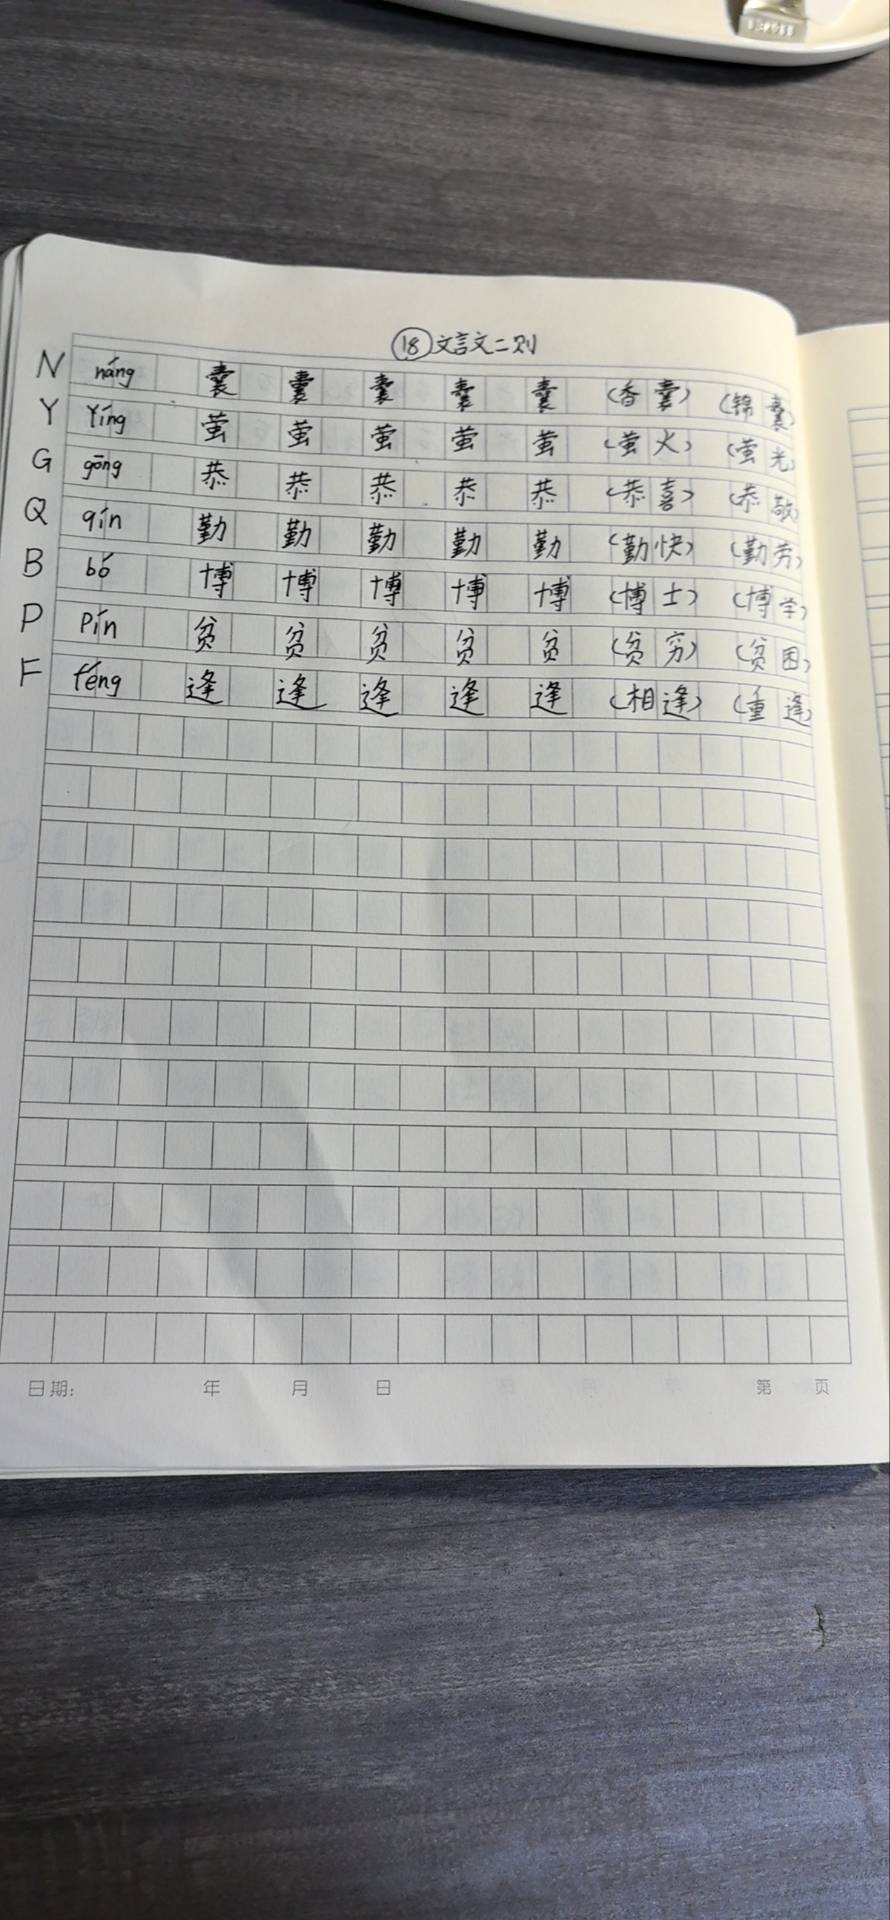 ⑱文言文二则
N náng 囊 囊 囊 囊 囊 (香囊) (锦囊)
Y Yíng 萤 萤 萤 萤 萤 (萤火) (萤光)
G gōng 恭 恭 恭 恭 恭 (恭喜) (恭敬)
Q qín 勤 勤 勤 勤 勤 (勤快) (勤劳)
B bó 博 博 博 博 博 (博士) (博学)
P Pín 贫 贫 贫 贫 贫 (贫穷) (贫困)
F féng 逢 逢 逢 逢 逢 (相逢) (重逢)
日期: 年 月 日 第 页